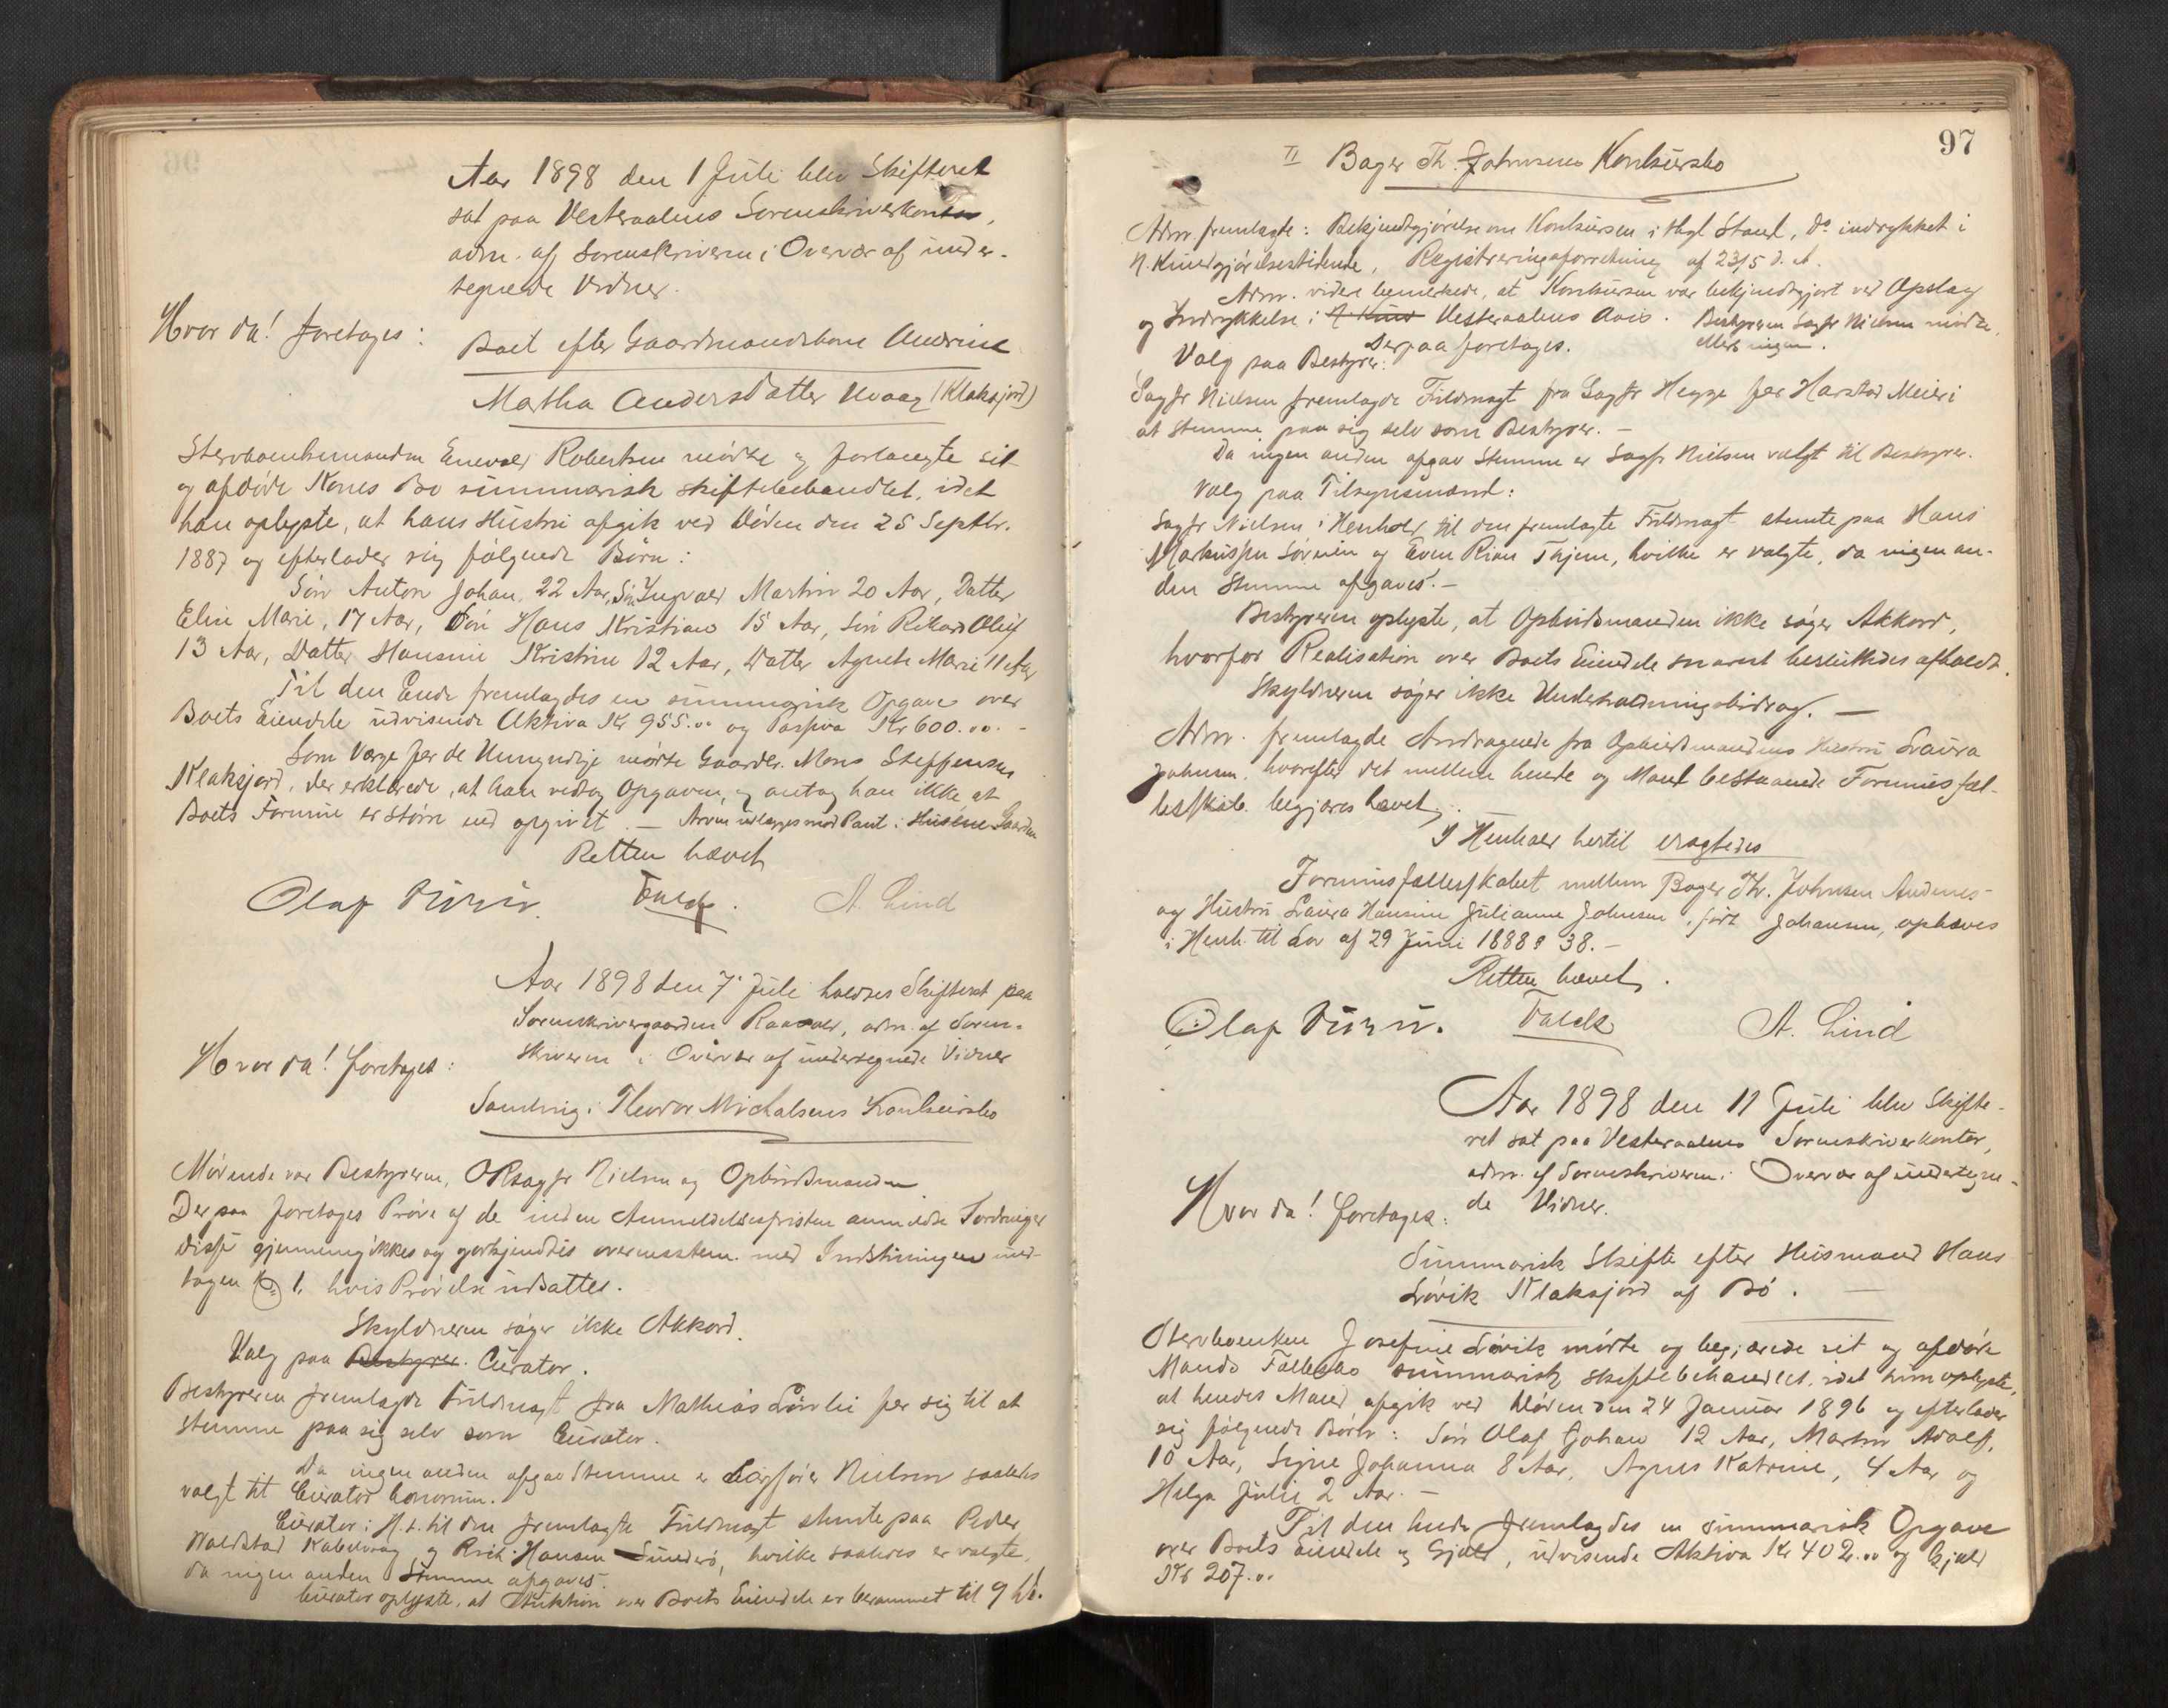 Aar 1898 den 1 Juli blev Skifteret
sat paa Vesteraalens Sorenskriverkontor,
adm. af Sorenskriveren i Overvær af under-
tegnede Vidner.
Hvor da! foretoges:
Boet efter Gaardmandskone Andrine
Martha Andersdatter Uvaag (Klaksjord)
Stervboenkemanden Enevold Robertsen mødte og forlangte sit
og afdøde Kones Bo summarisk skiftebehandlet, idet
han oplyste, at hans Hustru afgik ved Døden den 25 Septbr.
1887 og efterlader sig følgende Børn:
Søn Anton Johan, 22 Aar, Søn Ingvald Martin 20 Aar, Datter
Elise Marie, 17 Aar, Søn Hans Kristian 15 Aar, Søn Rikard Oluf
13 Aar, Datter Hansine Kristine 12 Aar, Datter Agnete Marie 11 Aar
Til den Ende fremlagdes en summarisk Opgave over
Boets Eiendele udvisende Aktiva Kr 955.00 og Passiva Kr 600.00. -
Som Værge for de Umyndige mødte Gaardbr. Mons Steffensen
Klaksjord, der erklærede, at han vedtog Opgaven, og antog han ikke, at
Boets Formue er større end opgivet. — Arven udlægges mod Pant i Gaarden
Retten hævet
Olaf Falck. A. Lind
Aar 1898 den 7de Juli holdtes Skifteret paa
Sorenskrivergaarden, adm. af Soren-
skriveren i Overvær af undertegnede Vidner
Hvor da! foretoges:
Samling i Theodor Michalsens Konkursbo
Mødende var Bestyreren, ORsagfr Nielsen og Opbudsmanden
Derpaa foretoges Prøve af de inden Anmeldelsesfristen anmeldte Fordringer
Disse gjennemgikkes og godkjendtes overensstem. med Indstillingen und-
tagen No 1, hvis Prøvelse udsattes.
Skyldneren søger ikke Akkord.
Valg paa Bestyrer. Curator.
Bestyreren fremlagde Fuldmagt fra Mathias Lørlie for sig til at
stemme paa sig selv som Curator.
Da ingen anden afgav Stemme er Sagfører Nielsen saaledes
valgt til Curator bonorum.
Curator i H. t. til den fremlagte Fuldmagt stemte paa Peder
Waldstad Kabelvaag og Rich. Hansen, hvilke saaledes er valgte,
da ingen anden Stemme afgaves.
Curator oplyste, at Auktion over Boets Eiendele er berammet til 9 ds.
97
II Bager Th. Johnsens Konkursbo
Adm. fremlagte: Bekjendtgjørelse om Konkursen i thgl Stand, Do indrykket i
N. Kundgjørelsestidende, Registreringsforretning af 23/5 d. A.
Adm. videre bemerkede, at Konkursen var bekjendtgjort ved Opslag
og Indrykkelse i N. Kund Vesteraalens Avis. Bestyreren Sagfr Nielsen mødte,
Mere ingen.
Derpaa foretoges.
Valg paa Bestyrer:
Sagfr Nielsen fremlagde Fuldmagt fra Sagfr Hegge for Harstad Meieri
at stemme paa sig selv som Bestyrer. —
Da ingen anden afgav Stemme er Sagfr Nielsen valgt til Bestyrer.
Valg paa Tilsynsmænd:
Sagfr Nielsen i Henhold til den fremlagte Fuldmagt stemte paa Hans
Markussen og Even Rian, hvilke er valgte, da ingen an-
den Stemme afgaves. —
Bestyreren oplyste, at Opbudsmanden ikke søger Akkord,
hvorfor Realisation over Boets Eiendele snarest besluttedes afholdt.
Skyldneren søger ikke Underholdningsbidrag. —
Adm. fremlagde Andragende fra Opbudsmandens Hustru Laura
Johnsen, hvorefter det mellem hende og Mand bestaaende Formuesfæl-
lesskab begjæres hævet.
I Henhold hertil eragtedes
Formuesfællesskabet mellem Bager Th. Johnsen Andenes
og Hustru Laura Hansine Julianne Johnsen, født Johansen, ophæves
i Henh. til Lov af 29 Juni 1888 § 38. —
Retten hævet.
Olaf Falck A. Lind
Aar 1898 den 11 Juli blev Skifte-
ret sat paa Vesteraalens Sorenskriverkontor,
adm. af Sorenskriveren i Overvær af undertegne-
de Vidner.
Hvor da! foretoges:
Summarisk Skifte efter Husmand Hans
Løvik Klaksjord af Bø. —
Stervboenken Josefine Løvik mødte og begjærede sit og afdøde
Mands Fællesbo summarisk skiftebehandlet, idet hun oplyste,
at hendes Mand afgik ved Døden den 24 Januar 1896 og efterlader
sig følgende Børn: Søn Olaf Johan 12 Aar, Martin Adolf,
10 Aar, Signe Johanna 8 Aar, Agnes Katrine, 4 Aar og
Helga Julie 2 Aar. —
Til den Ende fremlagdes en summarisk Opgave
over Boets Eiendele og Gjæld, udvisende Aktiva Kr 402.00 og Gjæld
Kr 207.00